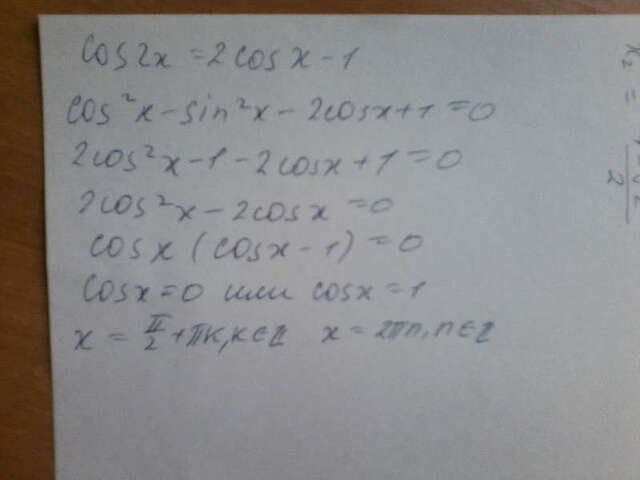 cos2x = 2cosx - 1
cos²x - sin²x - 2cosx + 1 = 0
2cos²x - 1 - 2cosx + 1 = 0
2cos²x - 2cosx = 0
cosx (cosx - 1) = 0
cosx = 0 или cosx = 1
x = π/2 + πk, k∈Z x = 2πn, n∈Z
x₂ =